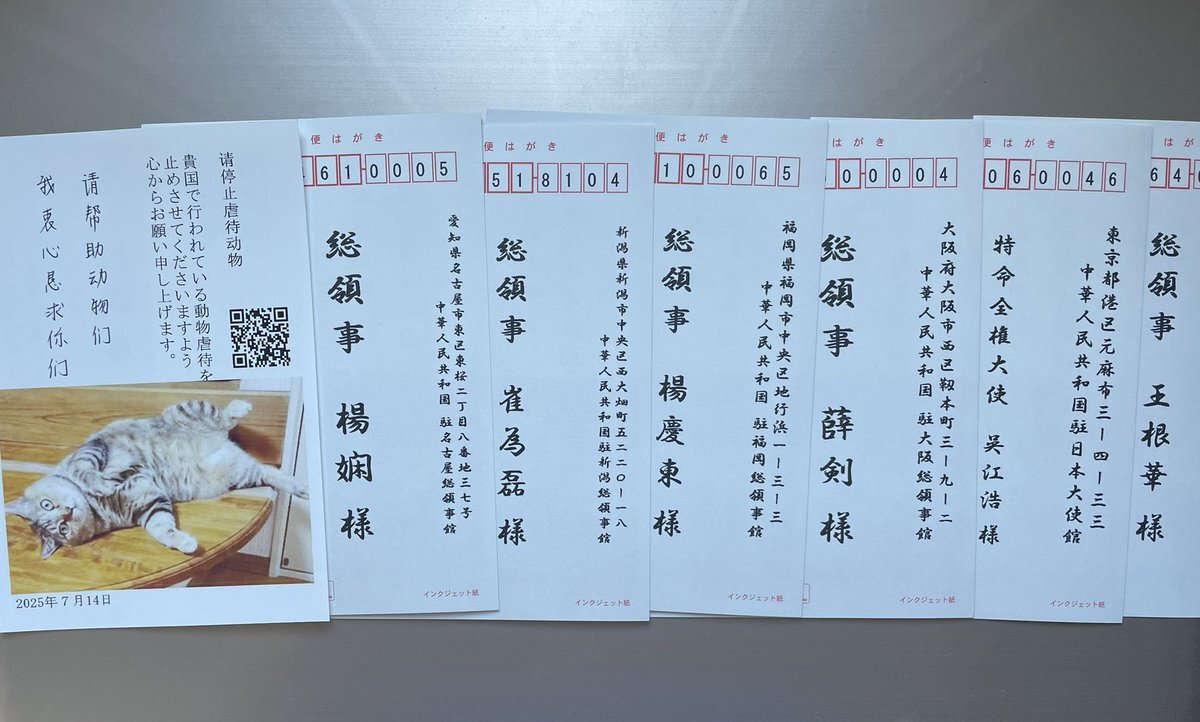 请停止虐待动物
貴国で行われている動物虐待を
止めさせてくださいますよう
心からお願い申し上げます。
请帮助动物们
我衷心恳求你们
2025年7月14日
便はがき
610005
愛知県名古屋市東区東桜二丁目八番地三七号
中華人民共和国 駐名古屋総領事館
総領事 楊嫻 様
インクジェット紙
便はがき
518104
新潟県新潟市中央区西大畑町五二二〇ー一八
中華人民共和国駐新潟総領事館
総領事 崔為磊 様
インクジェット紙
便はがき
100065
福岡県福岡市中央区地行浜一ー三ー三
中華人民共和国 駐福岡総領事館
総領事 楊慶東 様
インクジェット紙
便はがき
00004
大阪府大阪市西区靱本町三ー九ー二
中華人民共和国 駐大阪総領事館
総領事 薛剣 様
インクジェット紙
便はがき
060046
東京都港区元麻布三ー四ー三三
中華人民共和国駐日本大使館
特命全権大使 呉江浩 様
インクジェット紙
便はが
64
総領事 王根華 様